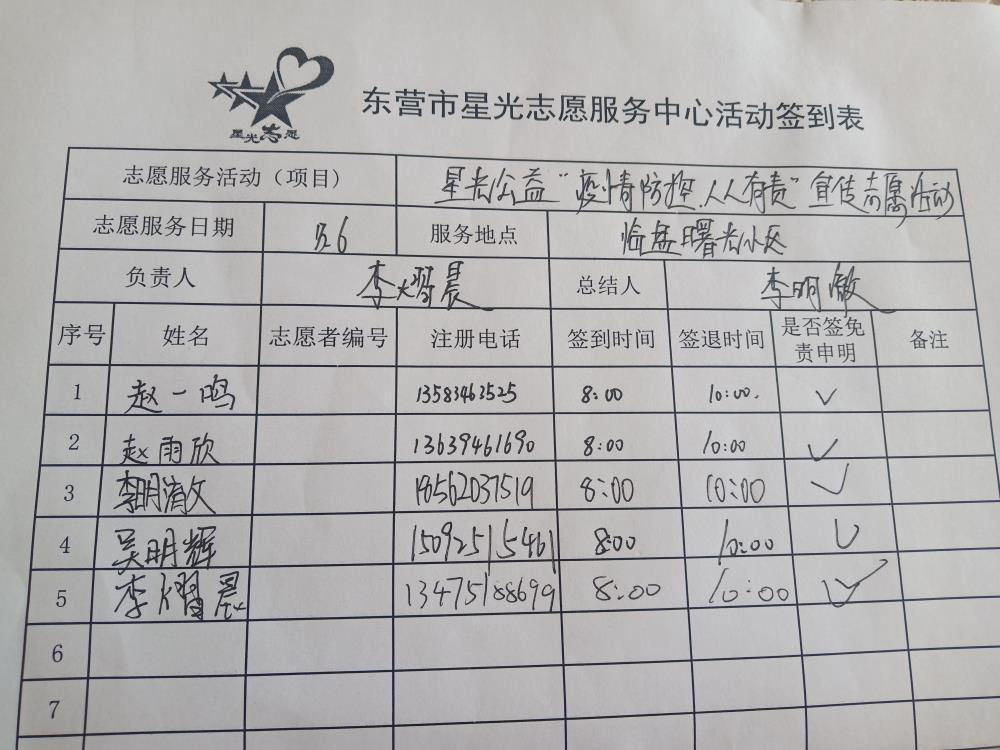 星光志愿
东营市星光志愿服务中心活动签到表
志愿服务活动（项目） 星光公益“疫情防控，人人有责”宣传志愿活动
志愿服务日期 3.6 服务地点 临盘曙光小区
负责人 李熠晨 总结人 李明澈
序号 姓名 志愿者编号 注册电话 签到时间 签退时间 是否签免责申明 备注
1 赵一鸣 13583463525 8:00 10:00. ✓
2 赵雨欣 13639461690 8:00 10:00 ✓
3 李明 18562037519 8:00 10:00 ✓
4 吴明辉 15092515461 8:00 10:00 ✓
5 李熠晨 13475188699 8:00 10:00 ✓
6
7